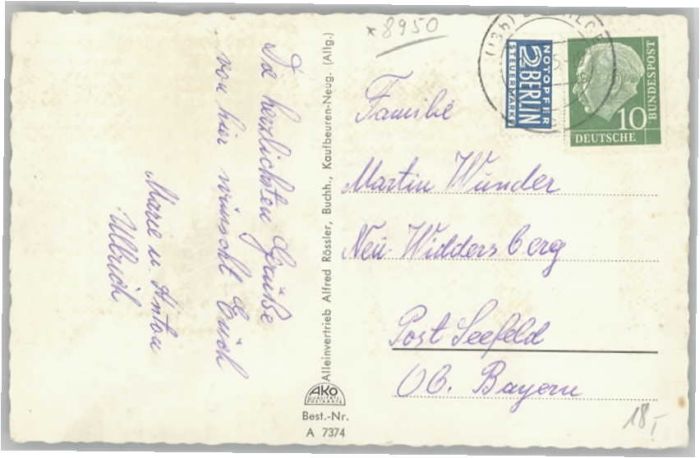 *8950
Die herzlichsten Grüße
von hier wünscht Euch
Marie u. Anton
Ullrich
Alleinvertrieb Alfred Rössler, Buchh., Kaufbeuren-Neug. (Allg.)
AKO
Best.-Nr.
A 7374
NOTOPFER
2 BERLIN
STEUERMARKE
10
DEUTSCHE
BUNDESPOST
Familie
Martin Wunder
Neu Widdersberg
Post Seefeld
OB. Bayern
18,-